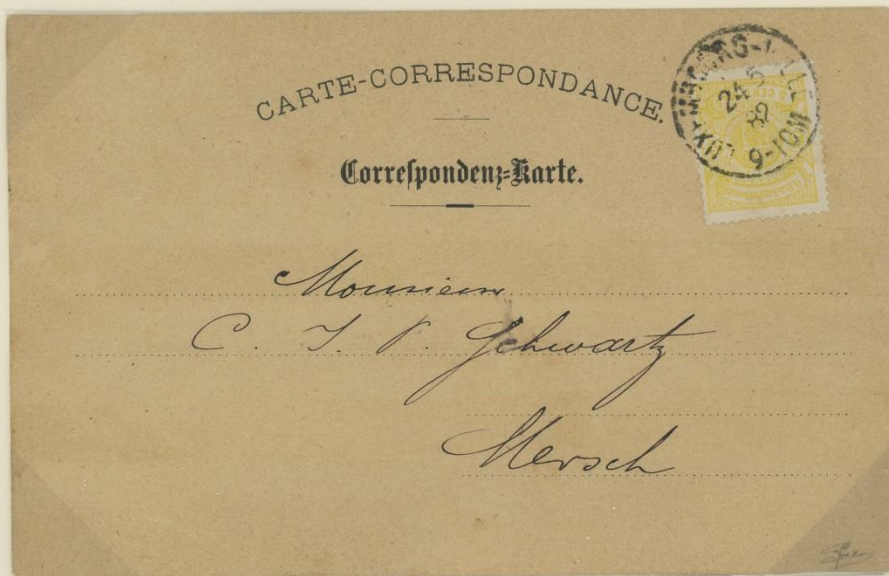 CARTE-CORRESPONDANCE.
Correſpondenz=Karte.
LUXEMBOURG-VILLE
24 5
82
9-10M
Monsieur
C. J. P. Schwartz
Mersch